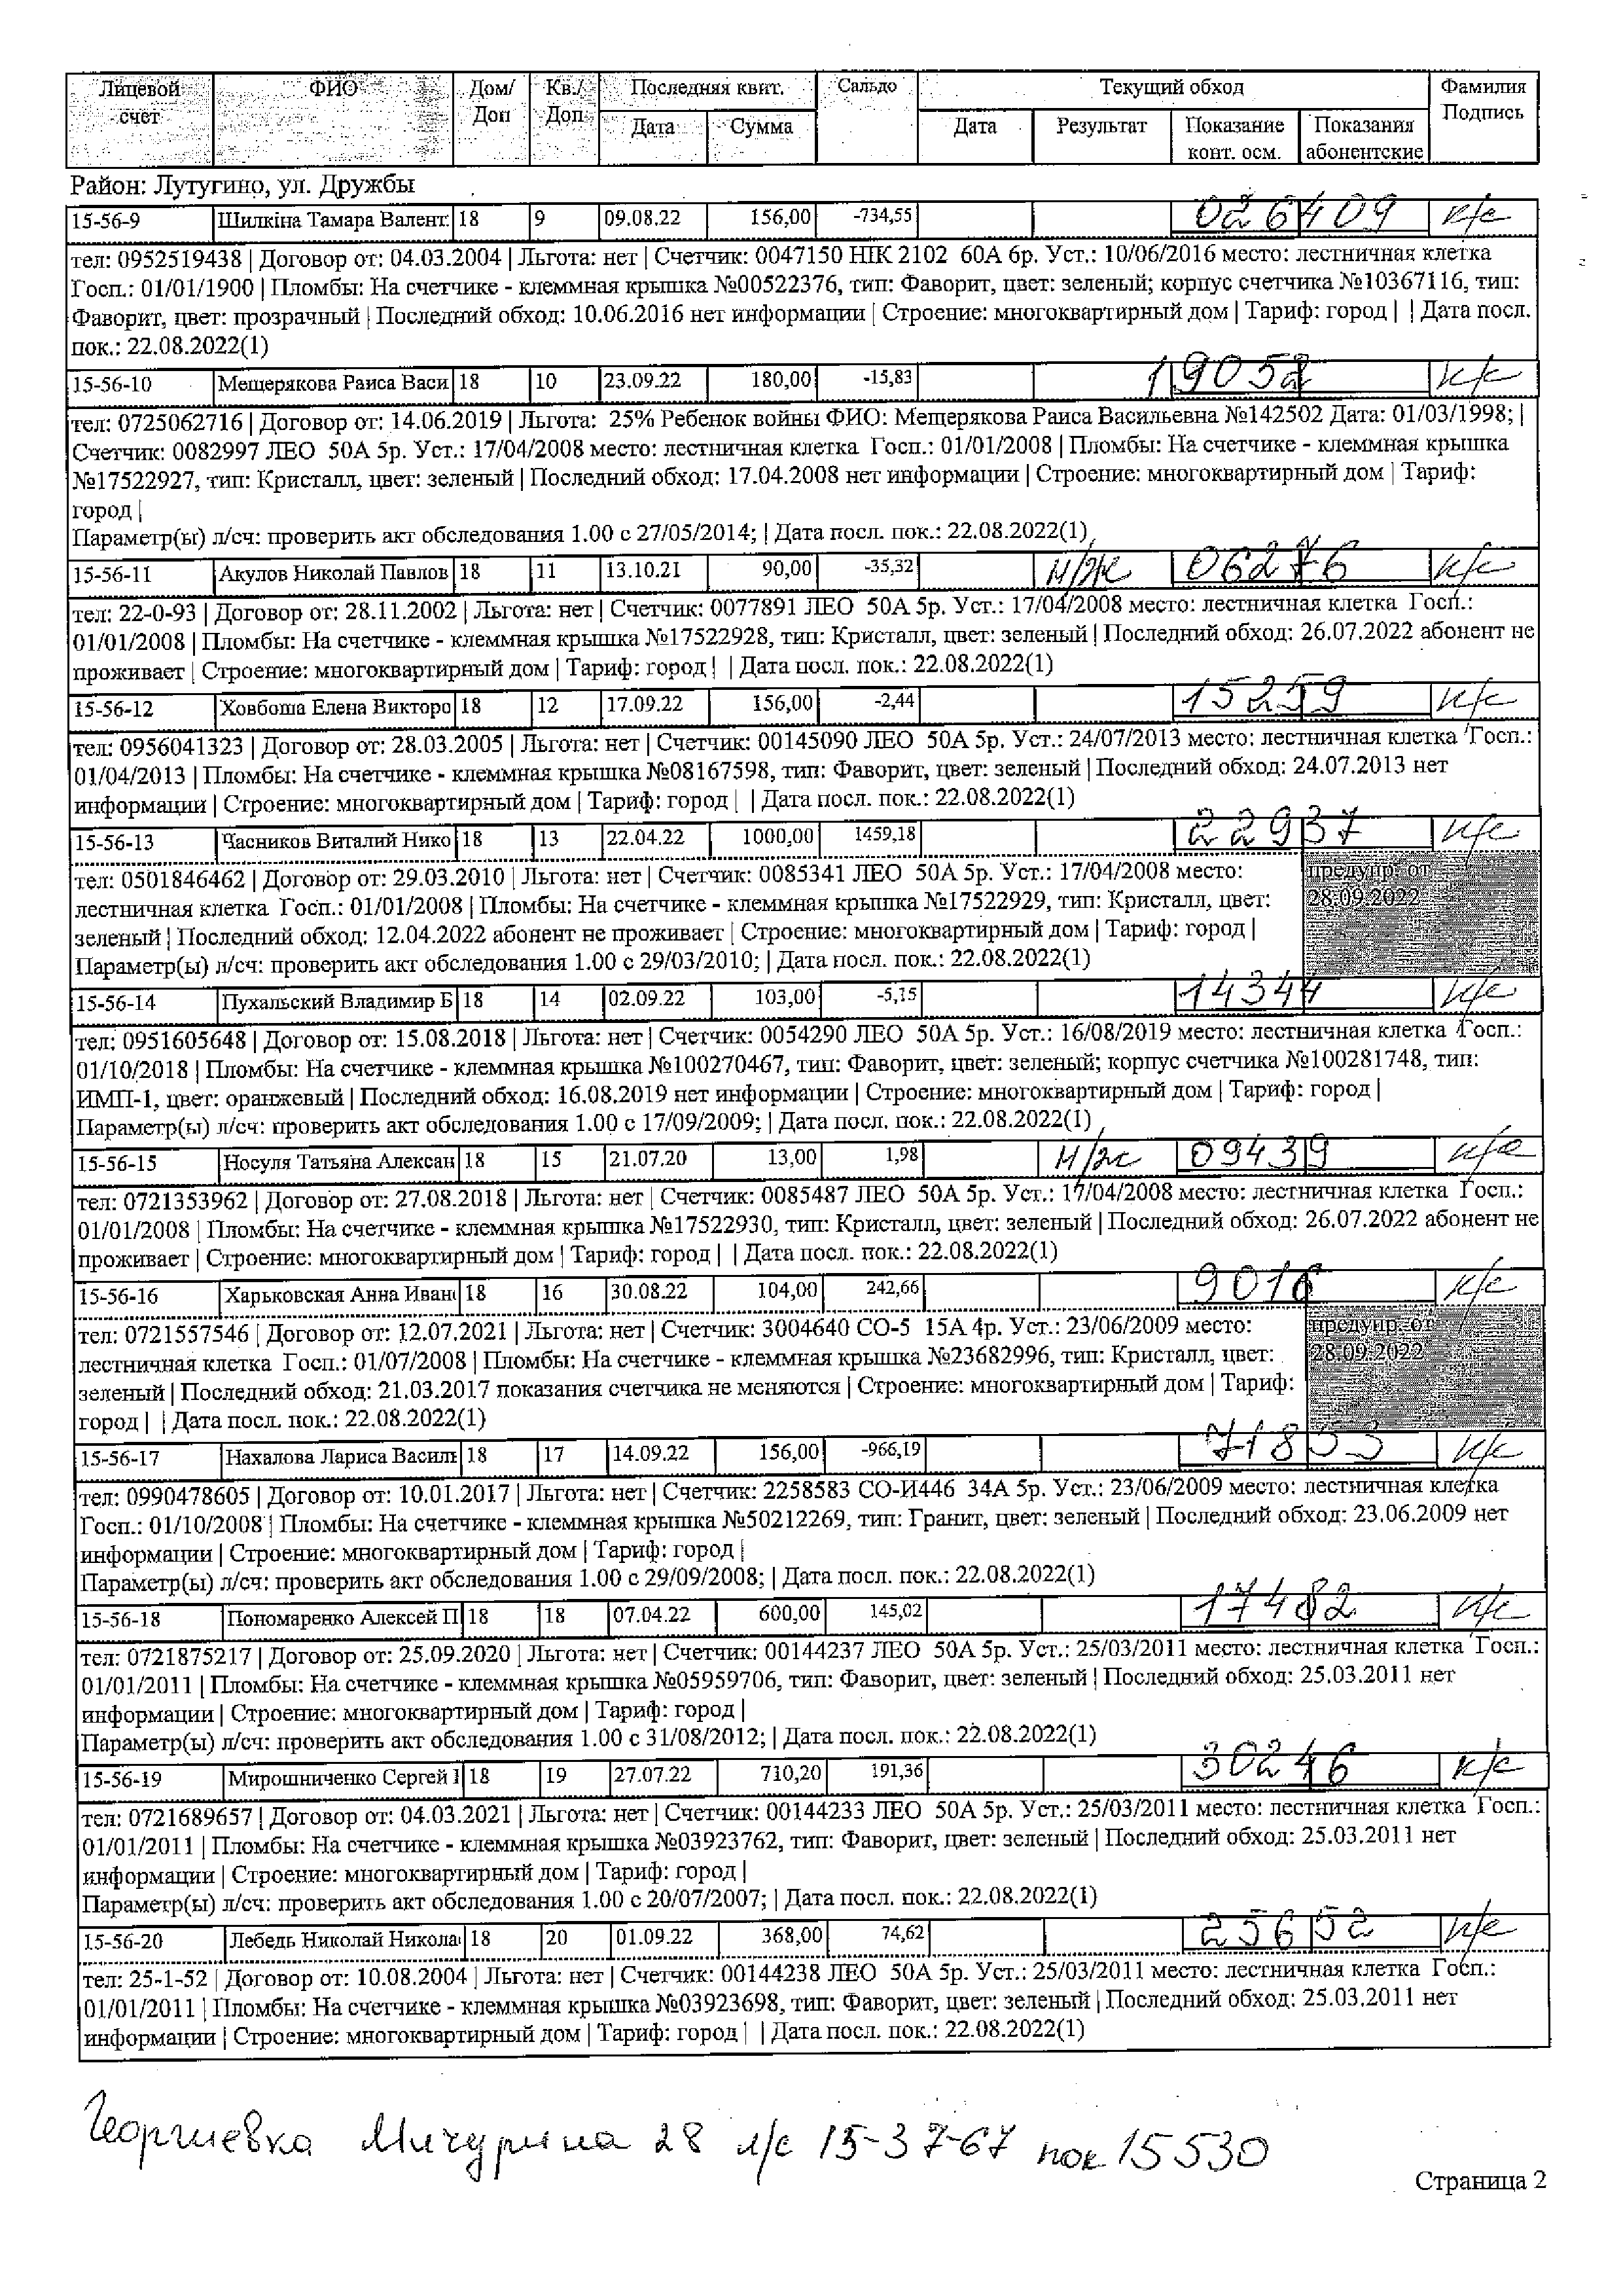 Лицевой счет ФИО Дом/Доп Кв./Доп Последняя квит. Сальдо Текущий обход Фамилия Подпись
Дата Сумма Дата Результат Показание конт. осм. Показания абонентские
Район: Лутугино, ул. Дружбы
15-56-9 Шилкіна Тамара Валент 18 9 09.08.22 156,00 -734,55 026409 к/с
тел: 0952519438 | Договор от: 04.03.2004 | Льгота: нет | Счетчик: 0047150 НІК 2102 60А 6р. Уст.: 10/06/2016 место: лестничная клетка
Госп.: 01/01/1900 | Пломбы: На счетчике - клеммная крышка №00522376, тип: Фаворит, цвет: зеленый; корпус счетчика №10367116, тип:
Фаворит, цвет: прозрачный | Последний обход: 10.06.2016 нет информации | Строение: многоквартирный дом | Тариф: город | | Дата посл.
пок.: 22.08.2022(1)
15-56-10 Мещерякова Раиса Васи 18 10 23.09.22 180,00 -15,83 19052 к/с
тел: 0725062716 | Договор от: 14.06.2019 | Льгота: 25% Ребенок войны ФИО: Мещерякова Раиса Васильевна №142502 Дата: 01/03/1998; |
Счетчик: 0082997 ЛЕО 50А 5р. Уст.: 17/04/2008 место: лестничная клетка Госп.: 01/01/2008 | Пломбы: На счетчике - клеммная крышка
№17522927, тип: Кристалл, цвет: зеленый | Последний обход: 17.04.2008 нет информации | Строение: многоквартирный дом | Тариф:
город |
Параметр(ы) л/сч: проверить акт обследования 1.00 с 27/05/2014; | Дата посл. пок.: 22.08.2022(1)
15-56-11 Акулов Николай Павлов 18 11 13.10.21 90,00 -35,32 н/ж 06276 к/с
тел: 22-0-93 | Договор от: 28.11.2002 | Льгота: нет | Счетчик: 0077891 ЛЕО 50А 5р. Уст.: 17/04/2008 место: лестничная клетка Госп.:
01/01/2008 | Пломбы: На счетчике - клеммная крышка №17522928, тип: Кристалл, цвет: зеленый | Последний обход: 26.07.2022 абонент не
проживает | Строение: многоквартирный дом | Тариф: город | | Дата посл. пок.: 22.08.2022(1)
15-56-12 Ховбоша Елена Викторо 18 12 17.09.22 156,00 -2,44 15259 к/с
тел: 0956041323 | Договор от: 28.03.2005 | Льгота: нет | Счетчик: 00145090 ЛЕО 50А 5р. Уст.: 24/07/2013 место: лестничная клетка Госп.:
01/04/2013 | Пломбы: На счетчике - клеммная крышка №08167598, тип: Фаворит, цвет: зеленый | Последний обход: 24.07.2013 нет
информации | Строение: многоквартирный дом | Тариф: город | | Дата посл. пок.: 22.08.2022(1)
15-56-13 Часников Виталий Нико 18 13 22.04.22 1000,00 1459,18 22937 к/с
тел: 0501846462 | Договор от: 29.03.2010 | Льгота: нет | Счетчик: 0085341 ЛЕО 50А 5р. Уст.: 17/04/2008 место: предупр. от
лестничная клетка Госп.: 01/01/2008 | Пломбы: На счетчике - клеммная крышка №17522929, тип: Кристалл, цвет: 28.09.2022
зеленый | Последний обход: 12.04.2022 абонент не проживает | Строение: многоквартирный дом | Тариф: город |
Параметр(ы) л/сч: проверить акт обследования 1.00 с 29/03/2010; | Дата посл. пок.: 22.08.2022(1)
15-56-14 Пухальский Владимир Б 18 14 02.09.22 103,00 -5,15 14344 к/с
тел: 0951605648 | Договор от: 15.08.2018 | Льгота: нет | Счетчик: 0054290 ЛЕО 50А 5р. Уст.: 16/08/2019 место: лестничная клетка Госп.:
01/10/2018 | Пломбы: На счетчике - клеммная крышка №100270467, тип: Фаворит, цвет: зеленый; корпус счетчика №100281748, тип:
ИМП-1, цвет: оранжевый | Последний обход: 16.08.2019 нет информации | Строение: многоквартирный дом | Тариф: город |
Параметр(ы) л/сч: проверить акт обследования 1.00 с 17/09/2009; | Дата посл. пок.: 22.08.2022(1)
15-56-15 Носуля Татьяна Алексан 18 15 21.07.20 13,00 1,98 н/ж 09439 к/с
тел: 0721353962 | Договор от: 27.08.2018 | Льгота: нет | Счетчик: 0085487 ЛЕО 50А 5р. Уст.: 17/04/2008 место: лестничная клетка Госп.:
01/01/2008 | Пломбы: На счетчике - клеммная крышка №17522930, тип: Кристалл, цвет: зеленый | Последний обход: 26.07.2022 абонент не
проживает | Строение: многоквартирный дом | Тариф: город | | Дата посл. пок.: 22.08.2022(1)
15-56-16 Харьковская Анна Иван 18 16 30.08.22 104,00 242,66 9016 к/с
тел: 0721557546 | Договор от: 12.07.2021 | Льгота: нет | Счетчик: 3004640 СО-5 15А 4р. Уст.: 23/06/2009 место: предупр. от
лестничная клетка Госп.: 01/07/2008 | Пломбы: На счетчике - клеммная крышка №23682996, тип: Кристалл, цвет: 28.09.2022
зеленый | Последний обход: 21.03.2017 показания счетчика не меняются | Строение: многоквартирный дом | Тариф:
город | | Дата посл. пок.: 22.08.2022(1)
15-56-17 Нахалова Лариса Василь 18 17 14.09.22 156,00 -966,19 71853 к/с
тел: 0990478605 | Договор от: 10.01.2017 | Льгота: нет | Счетчик: 2258583 СО-И446 34А 5р. Уст.: 23/06/2009 место: лестничная клетка
Госп.: 01/10/2008 | Пломбы: На счетчике - клеммная крышка №50212269, тип: Гранит, цвет: зеленый | Последний обход: 23.06.2009 нет
информации | Строение: многоквартирный дом | Тариф: город |
Параметр(ы) л/сч: проверить акт обследования 1.00 с 29/09/2008; | Дата посл. пок.: 22.08.2022(1)
15-56-18 Пономаренко Алексей П 18 18 07.04.22 600,00 145,02 17482 к/с
тел: 0721875217 | Договор от: 25.09.2020 | Льгота: нет | Счетчик: 00144237 ЛЕО 50А 5р. Уст.: 25/03/2011 место: лестничная клетка Госп.:
01/01/2011 | Пломбы: На счетчике - клеммная крышка №05959706, тип: Фаворит, цвет: зеленый | Последний обход: 25.03.2011 нет
информации | Строение: многоквартирный дом | Тариф: город |
Параметр(ы) л/сч: проверить акт обследования 1.00 с 31/08/2012; | Дата посл. пок.: 22.08.2022(1)
15-56-19 Мирошниченко Сергей 18 19 27.07.22 710,20 191,36 30246 к/с
тел: 0721689657 | Договор от: 04.03.2021 | Льгота: нет | Счетчик: 00144233 ЛЕО 50А 5р. Уст.: 25/03/2011 место: лестничная клетка Госп.:
01/01/2011 | Пломбы: На счетчике - клеммная крышка №03923762, тип: Фаворит, цвет: зеленый | Последний обход: 25.03.2011 нет
информации | Строение: многоквартирный дом | Тариф: город |
Параметр(ы) л/сч: проверить акт обследования 1.00 с 20/07/2007; | Дата посл. пок.: 22.08.2022(1)
15-56-20 Лебедь Николай Никола 18 20 01.09.22 368,00 74,62 25652 к/с
тел: 25-1-52 | Договор от: 10.08.2004 | Льгота: нет | Счетчик: 00144238 ЛЕО 50А 5р. Уст.: 25/03/2011 место: лестничная клетка Госп.:
01/01/2011 | Пломбы: На счетчике - клеммная крышка №03923698, тип: Фаворит, цвет: зеленый | Последний обход: 25.03.2011 нет
информации | Строение: многоквартирный дом | Тариф: город | | Дата посл. пок.: 22.08.2022(1)
Георгиевка Мичурина 28 л/с 15-37-67 пок 15530
Страница 2